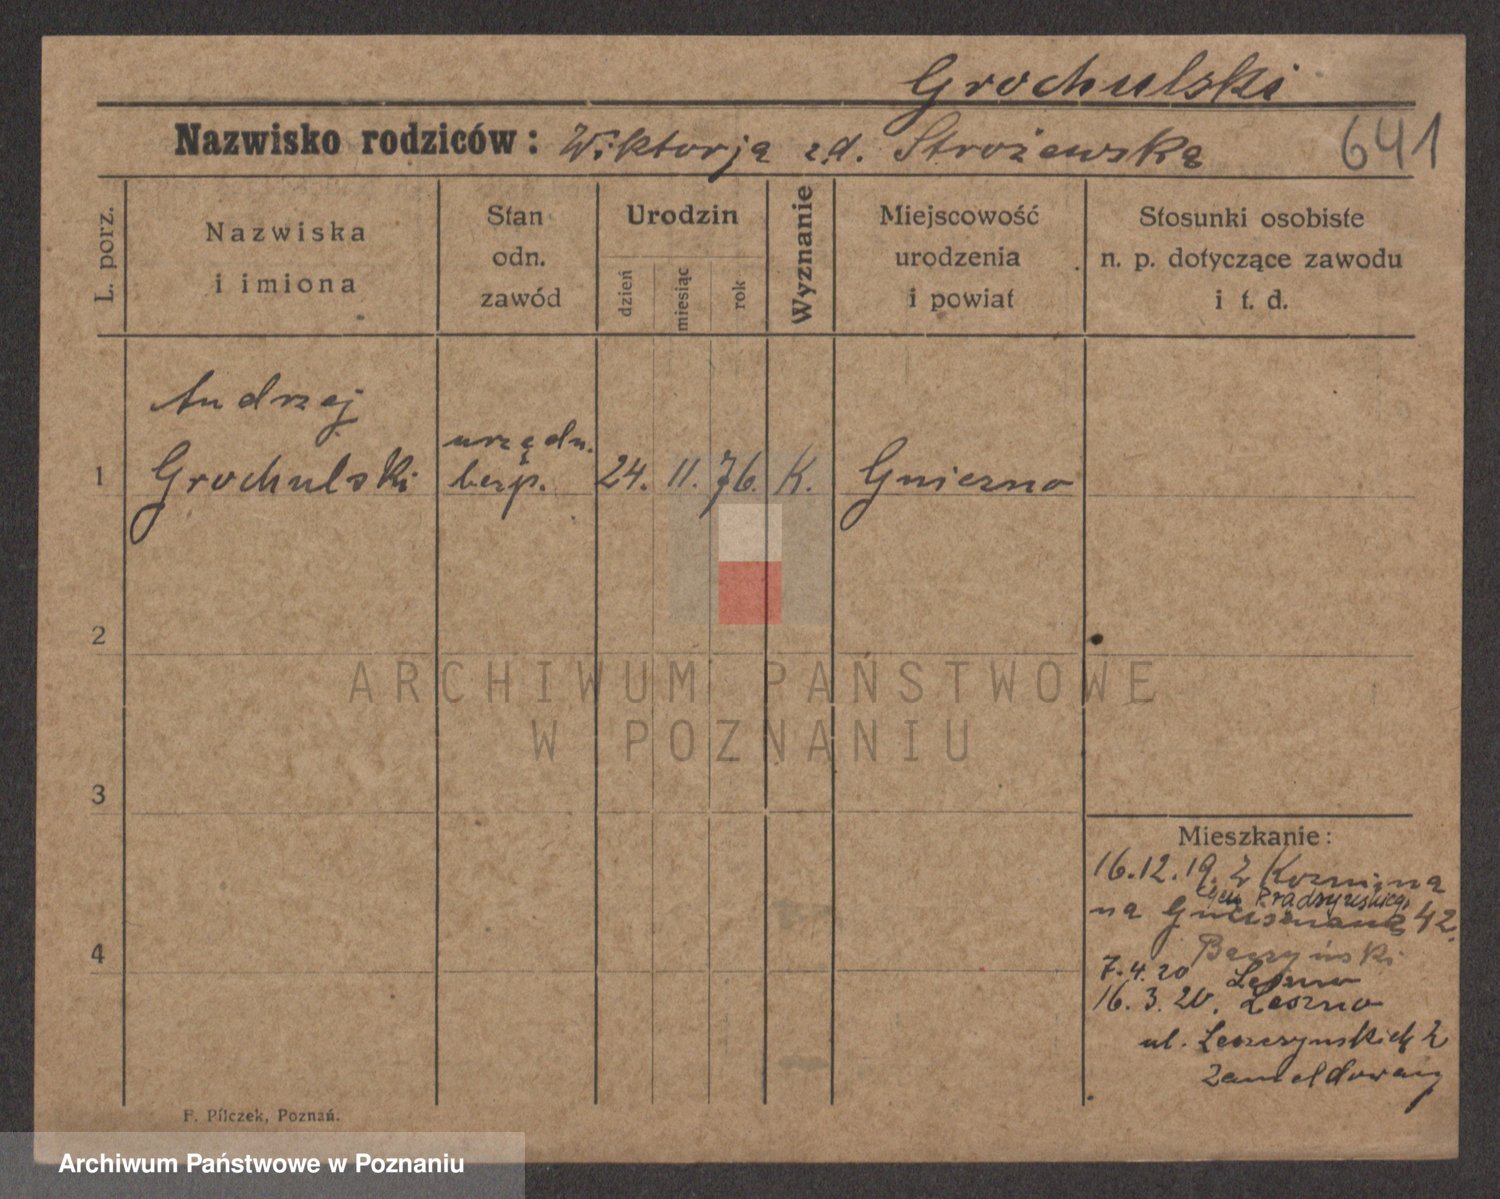 Grochulski
Nazwisko rodziców: Wiktorja zd. Strożewską
641
L. porz.
Nazwiska
i imiona
Stan
odn.
zawód
Urodzin
dzień
miesiąc
rok
Wyznanie
Miejscowość
urodzenia
i powiat
Stosunki osobiste
n. p. dotyczące zawodu
i t. d.
Andrzej
urzędn.
1 Grochulski besp. 24. 11. 76. K. Gniezno
2
ARCHIWUM PAŃSTWOWE
W POZNANIU
3
Mieszkanie:
16.12.19. z Kozmina
Prądzyńskiego
na 42.
4
7.4.20 Leszno
16.3.20. Leszno
ul. Leszczynskich 2
zameldowany
F. Pilczek, Poznań.
Archiwum Państwowe w Poznaniu